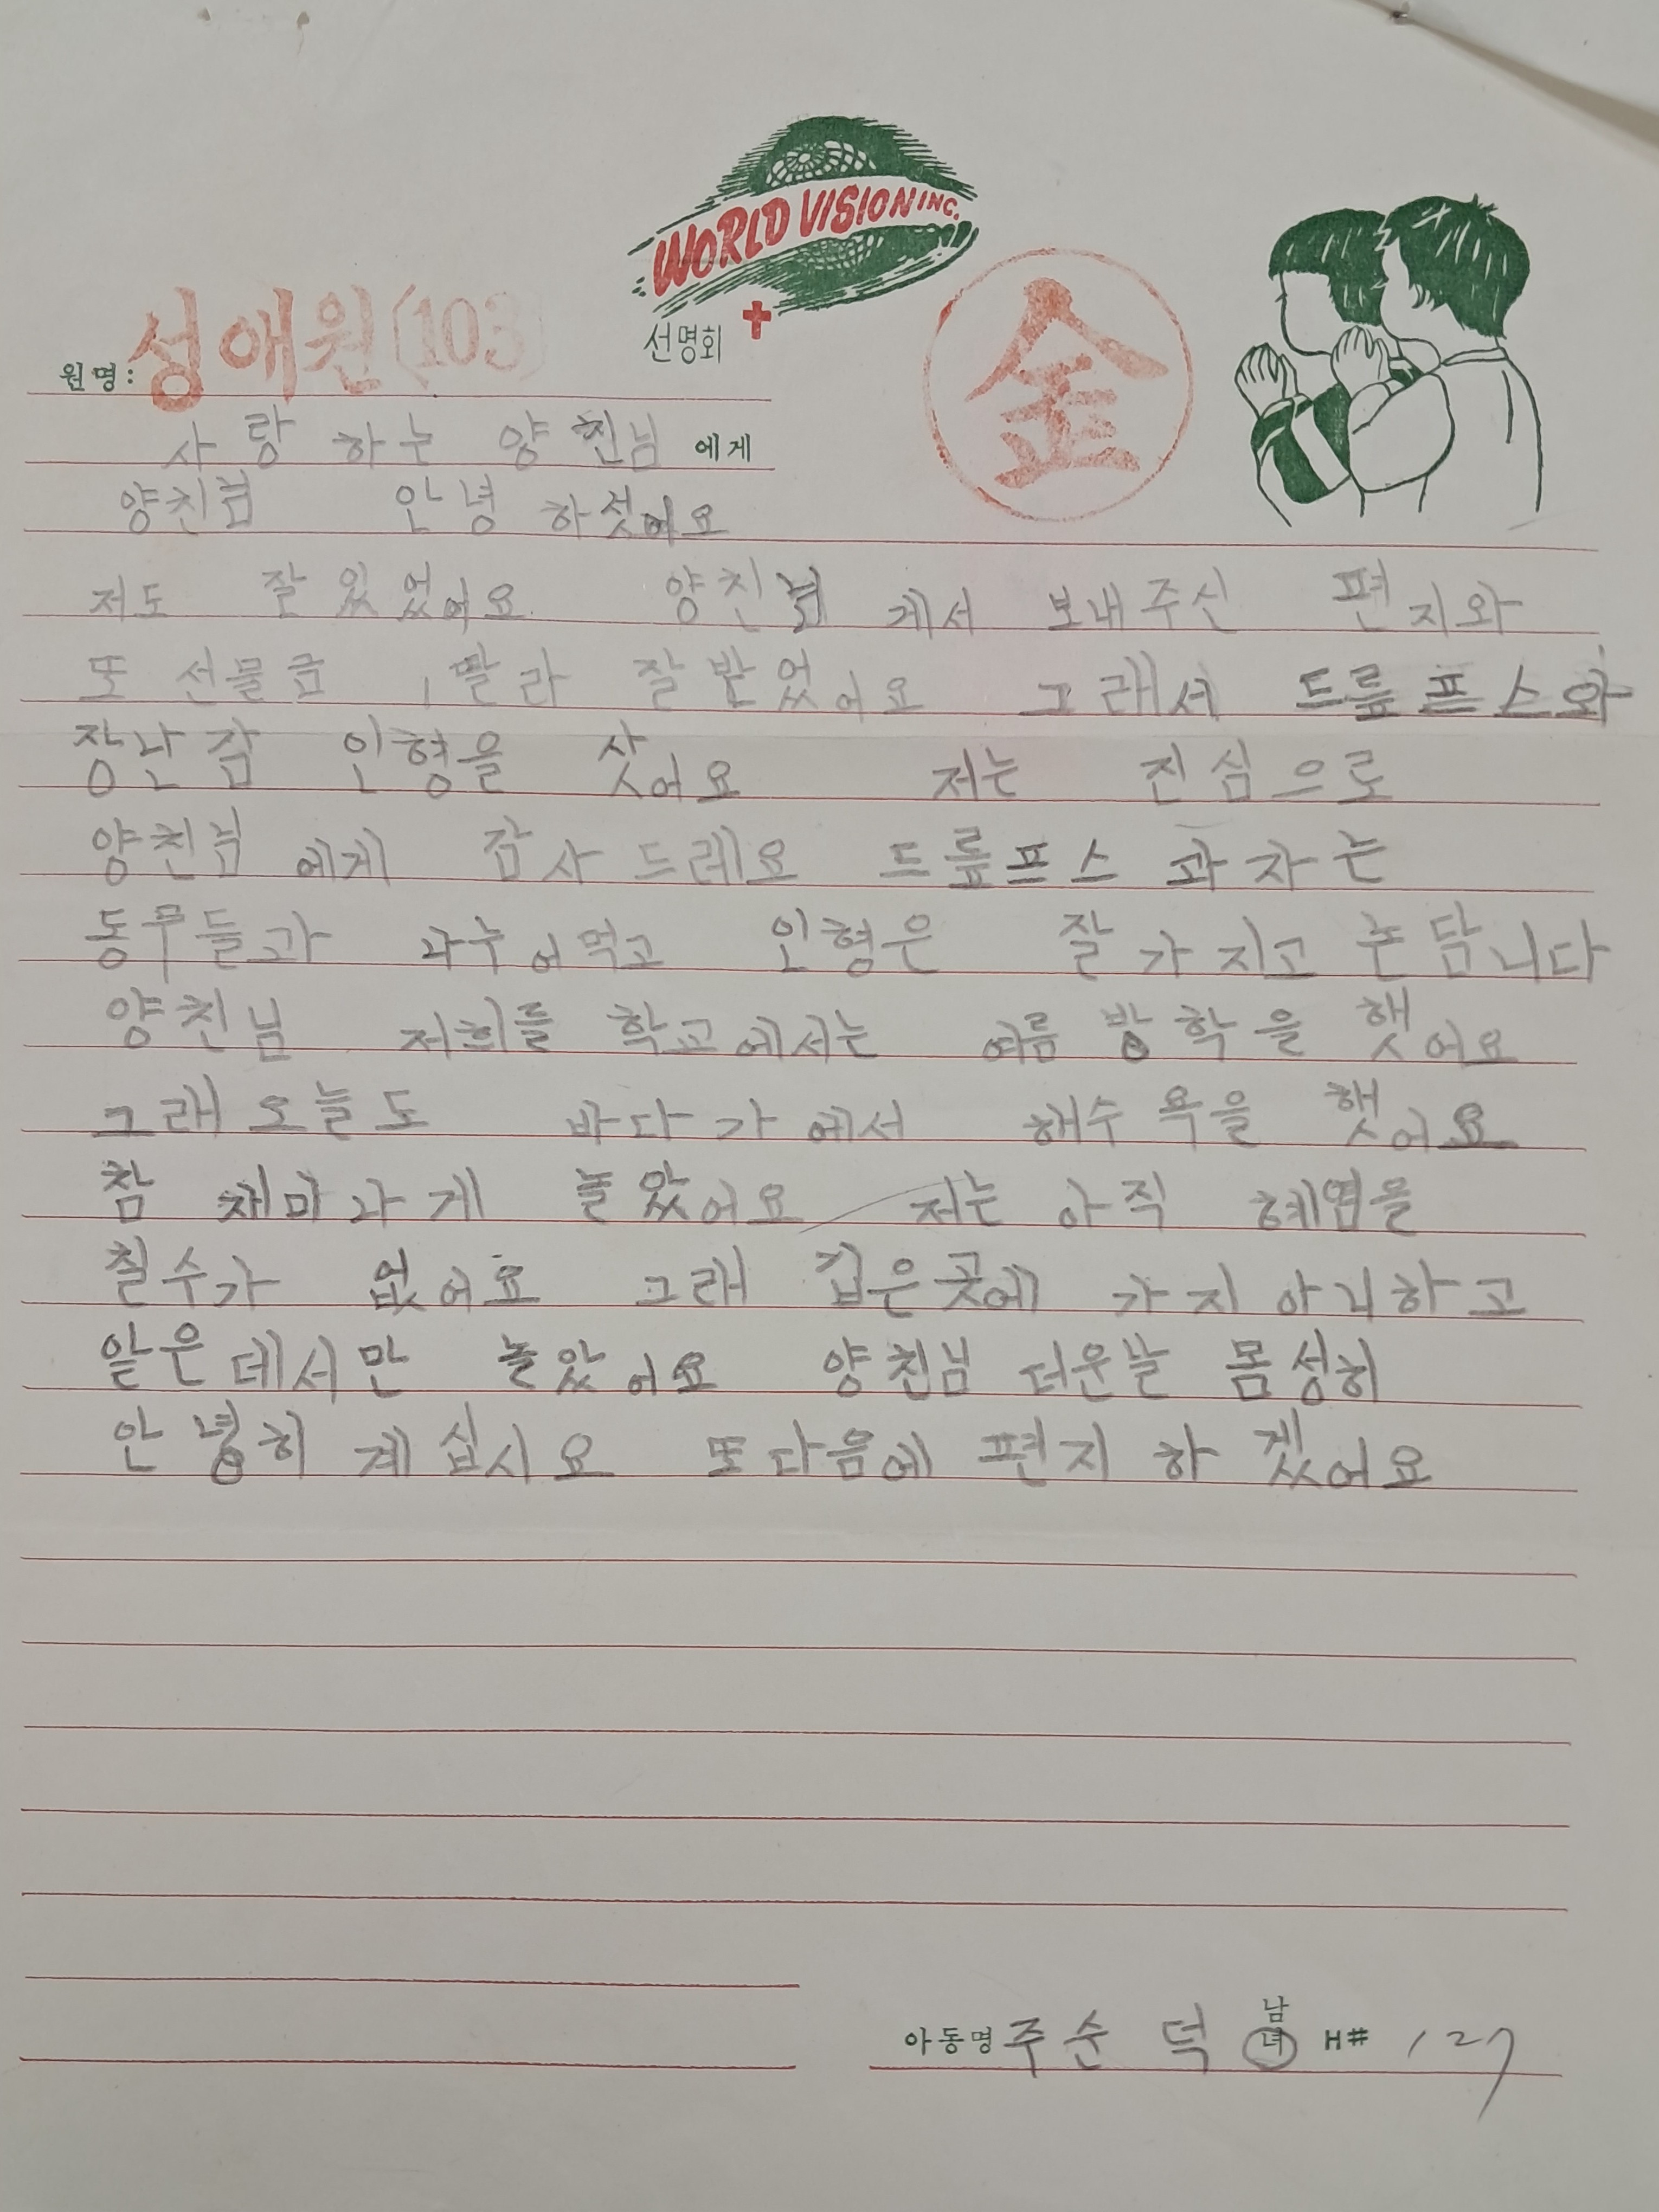 WORLD VISION INC.
선명회
金
원명: 성애원 (103)
사랑하는 양친님 에게
양친님 안녕 하셋어요
저도 잘 있었어요 양친님 게서 보내주신 편지와
또 선물금 1딸라 잘 받었어요 그래서 드롶프스와
장난감 인형을 삿어요 저는 진심으로
양친님 에게 감사 드레요 드롶프스 과자는
동무들과 나누어먹고 인형은 잘 가지고 논답니다
양친님 저희들 학교에서는 여름 방학을 햇어요
그래 오늘도 바다가에서 해수욕을 햇어요
참 재미나게 놀았어요 저는 아직 헤염을
칠수가 없어요 그래 깁은곳에 가지 아니하고
얕은데서만 놀았어요 양친님 더운날 몸성히
안녕히 계십시요 또다음에 편지 하겠어요
아동명 주순덕 남 녀 H# 127